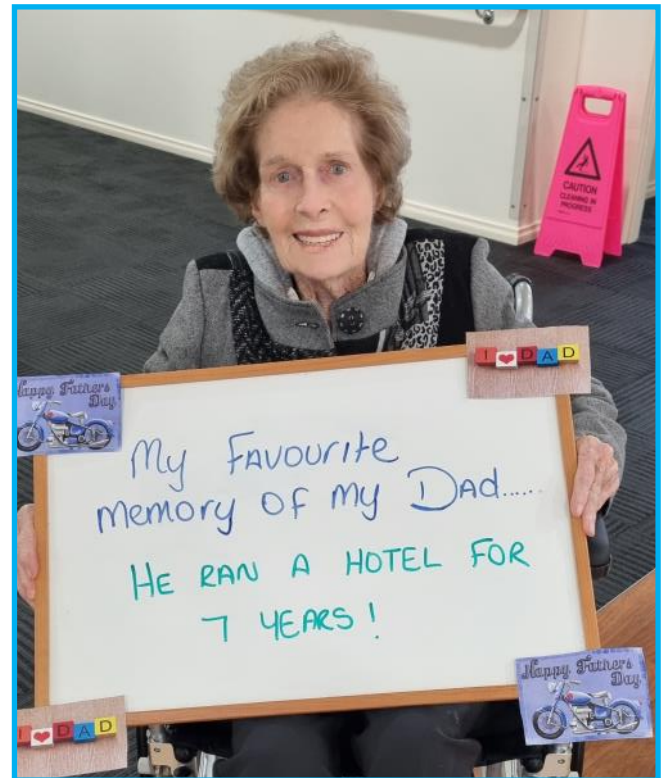 CAUTION
CLEANING IN
PROGRESS
I ❤ DAD
Happy Fathers
Day
My FAVOURITE
memory OF my DAd......
HE RAN A HOTEL FOR
7 YEARS!
Happy Fathers
Day
I ❤ DAD